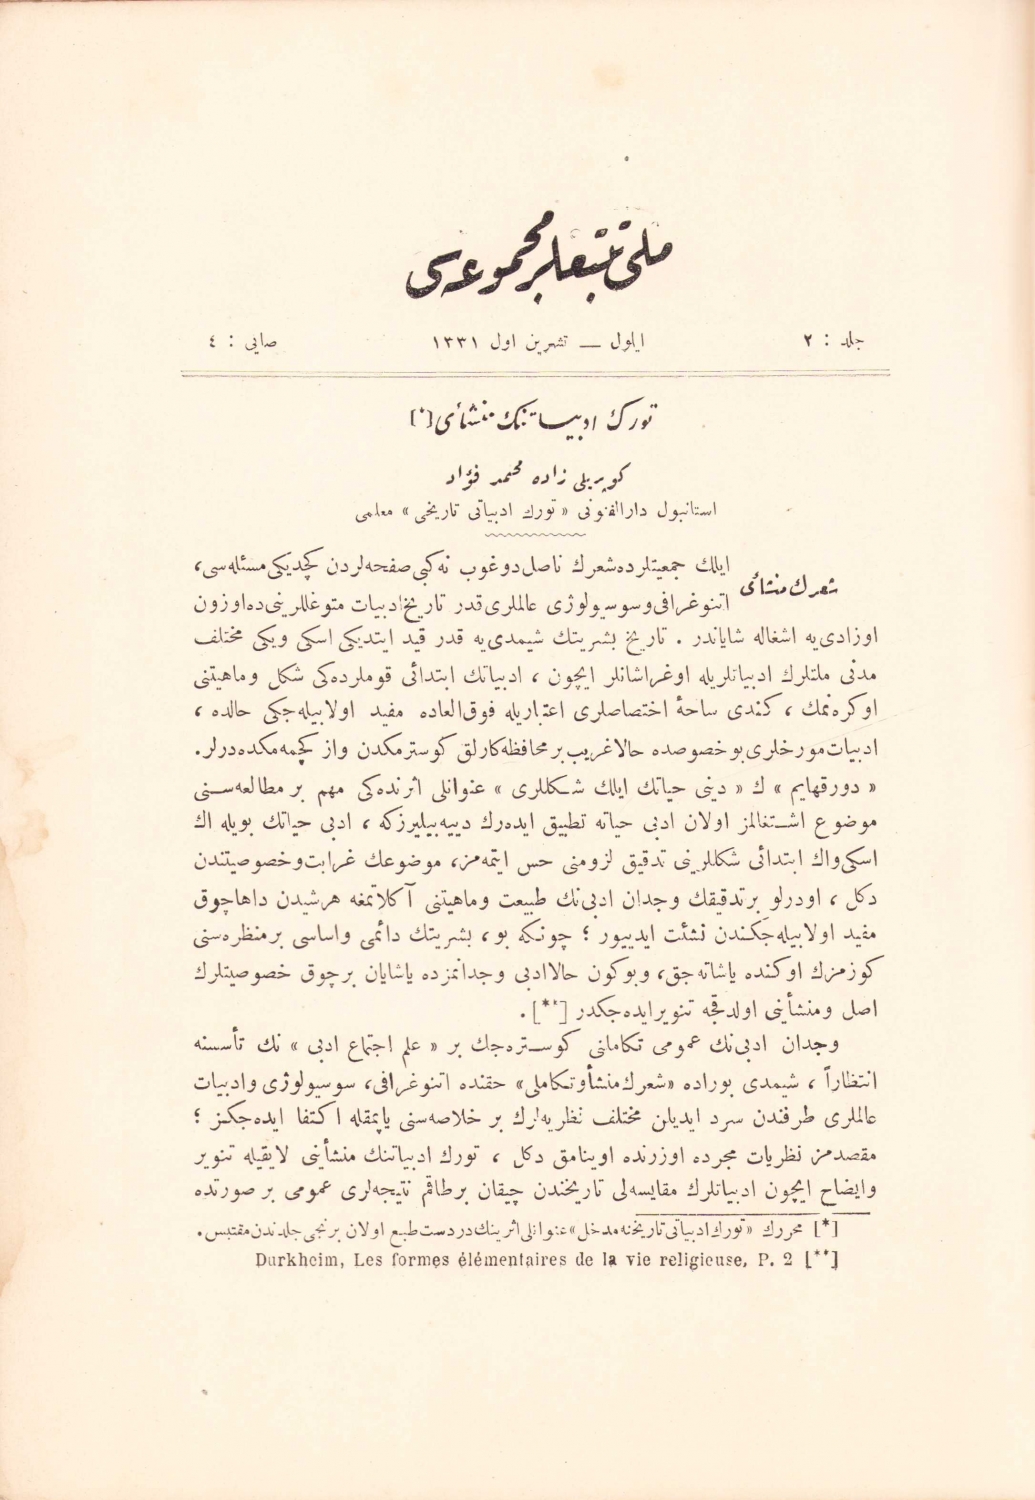 ملی تتبعلر مجموعه‌سی
جلد : ٢
ایلول — تشرین اول ١٣٣١
صایی : ٤
تورك ادبیاتنك منشأی [*]
كوپریلی زاده محمد فؤاد
استانبول دارالفنونی « تورك ادبیاتی تاریخی » معلمی
شعرك منشأی
ایلك جمعیتلرده شعرك ناصل دوغوب نه كبی صفحه‌لردن كچدیكی مسئله‌سی،
اتنوغرافی و سوسیولوژی عالملری قدر تاریخ ادبیات متوغللرینی ده اوزون
اوزادی‌یه اشغاله شایاندر . تاریخ بشریتك شیمدی‌یه قدر قید ایتدیكی اسكی ویكی مختلف
مدنی ملتلرك ادبیاتلریله اوغراشانلر ایچون ، ادبیاتك ابتدائی قوملرده‌كی شكل وماهیتنی
اوكره‌نمك ، كندی ساحهٔ اختصاصلری اعتباریله فوق‌العاده مفید اولابیله‌جكی حالده ،
ادبیات مورخلری بو خصوصده حالا غریب بر محافظه‌كارلق كوسترمكدن واز كچمه‌مكده‌درلر.
« دورقهایم » ك « دینی حیاتك ایلك شكللری » عنوانلی اثرنده‌كی مهم بر مطالعه‌سنی
موضوع اشتغالمز اولان ادبی حیاته تطبیق ایده‌رك دییه‌بیلیرزكه ، ادبی حیاتك بویله اك
اسكی واك ابتدائی شكللرینی تدقیق لزومنی حس ایتمه‌مز، موضوعك غرابت وخصوصیتندن
دكل ، اودرلو بر تدقیقك وجدان ادبی‌نك طبیعت وماهیتنی آكلاتمغه هر شیدن داها چوق
مفید اولابیله‌جكندن نشئت ایدییور ؛ چونكه بو، بشریتك دائمی واساسی بر منظره‌سنی
كوزمزك اوكنده یاشاته‌جق، وبوكون حالا ادبی وجدانمزده یاشایان بر چوق خصوصیتلرك
اصل ومنشأینی اولدقجه تنویر ایده‌جكدر [**] .
وجدان ادبی‌نك عمومی تكاملنی كوستره‌جك بر « علم اجتماع ادبی » نك تأسسنه
انتظاراً ، شیمدی بوراده «شعرك منشأ وتكاملی» حقنده اتنوغرافی، سوسیولوژی وادبیات
عالملری طرفندن سرد ایدیلن مختلف نظریه‌لرك بر خلاصه‌سنی یاپمقله اكتفا ایده‌جكز ؛
مقصدمز نظریات مجرده اوزرنده اوینامق دكل ، تورك ادبیاتنك منشأینی لایقیله تنویر
وایضاح ایچون ادبیاتلرك مقایسه‌لی تاریخندن چیقان بر طاقم نتیجه‌لری عمومی بر صورتده
[*] محررك «تورك ادبیاتی تاریخنه مدخل» عنوانلی اثرینك دردست طبع اولان برنجی جلدندن مقتبس.
Durkheim, Les formes élémentaires de la vie religieuse, P. 2 [**]